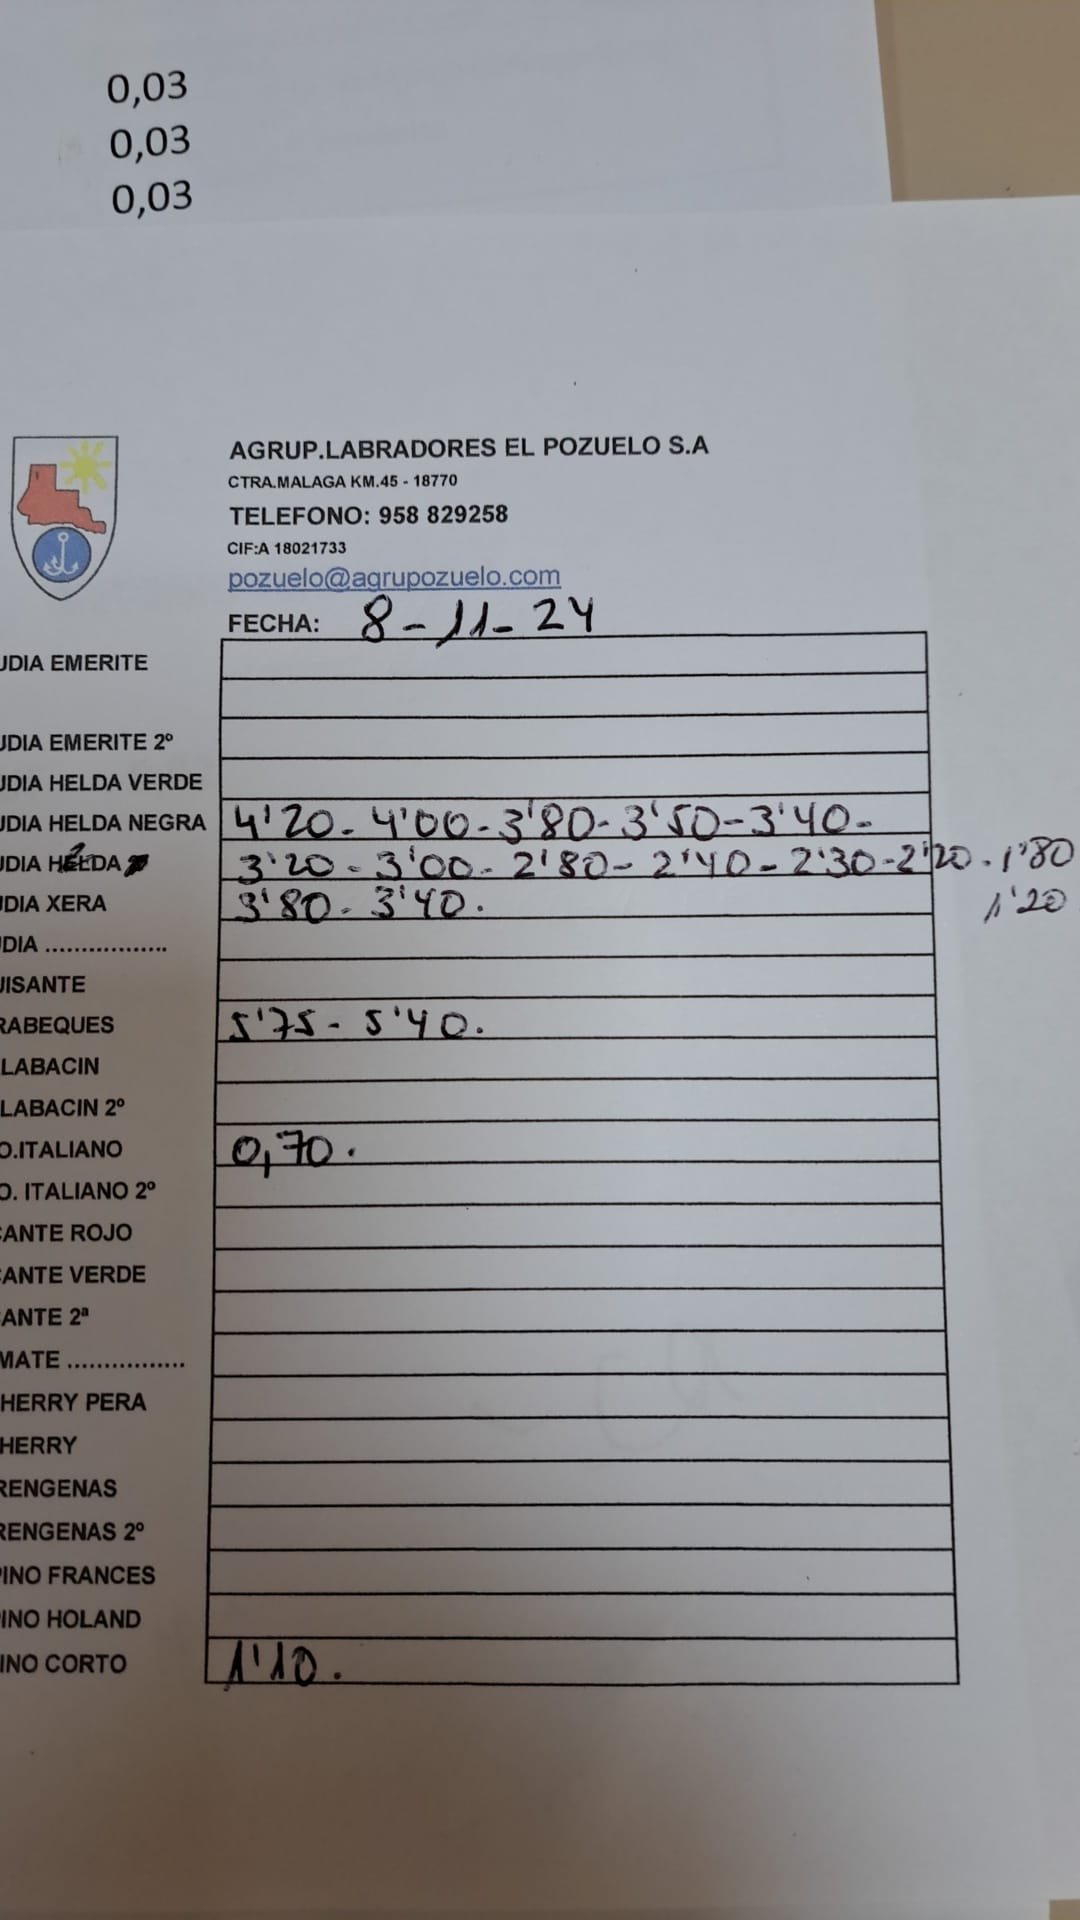 0,03
0,03
0,03
AGRUP.LABRADORES EL POZUELO S.A
CTRA.MALAGA KM.45 - 18770
TELEFONO: 958 829258
CIF:A 18021733
pozuelo@agrupozuelo.com
FECHA: 8-11-24
UDIA EMERITE
UDIA EMERITE 2º
UDIA HELDA VERDE
UDIA HELDA NEGRA 4'20- 4'00-3'80-3'50-3'40-
UDIA HELDA 3'20-3'00-2'80-2'40-2'30-2'20-1'80
1'20
UDIA XERA 3'80-3'40.
DIA .................
UISANTE
RABEQUES 5'75-5'40.
LABACIN
LABACIN 2º
O.ITALIANO 0,70.
O. ITALIANO 2º
CANTE ROJO
CANTE VERDE
CANTE 2ª
MATE ................
HERRY PERA
HERRY
RENGENAS
RENGENAS 2º
PINO FRANCES
INO HOLAND
INO CORTO 1'10.